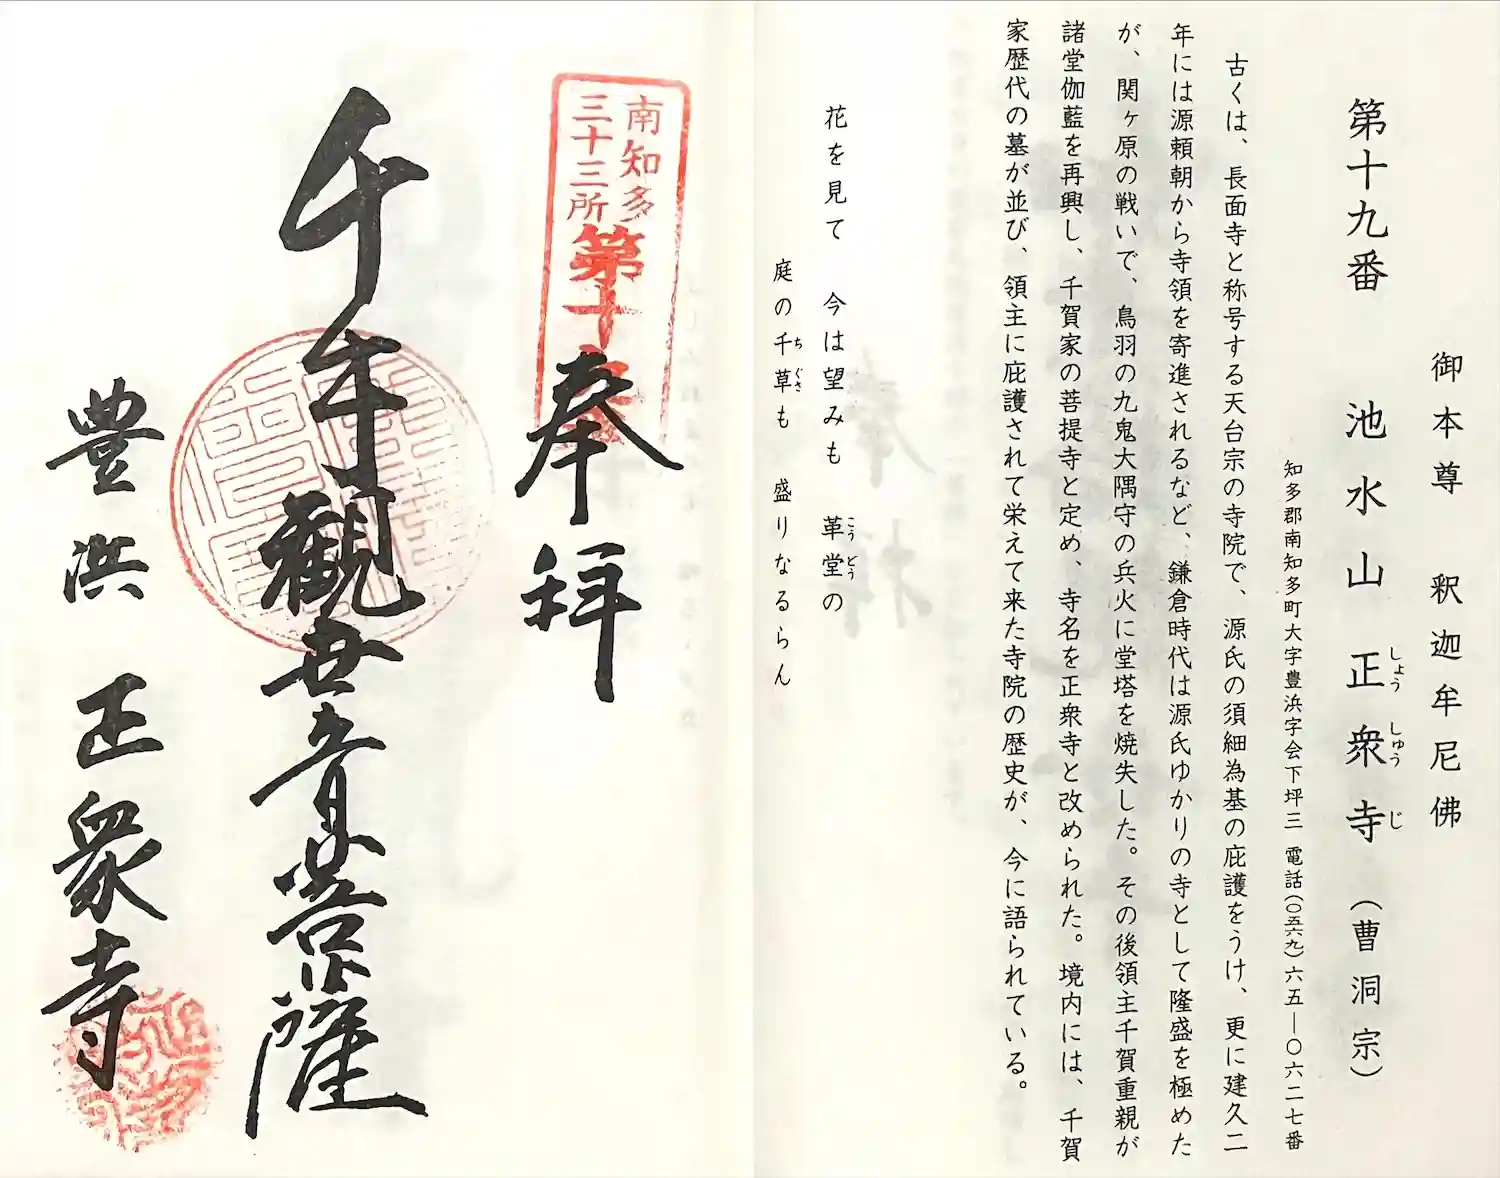 御本尊　釈迦牟尼佛
第十九番　池水山　正衆寺（曹洞宗）
しょうしゅうじ
知多郡南知多町大字豊浜字会下坪三　電話(〇五六九)六五―〇六二七番
古くは、長面寺と称号する天台宗の寺院で、源氏の須細為基の庇護をうけ、更に建久二
年には源頼朝から寺領を寄進されるなど、鎌倉時代は源氏ゆかりの寺として隆盛を極めた
が、関ヶ原の戦いで、鳥羽の九鬼大隅守の兵火に堂塔を焼失した。その後領主千賀重親が
諸堂伽藍を再興し、千賀家の菩提寺と定め、寺名を正衆寺と改められた。境内には、千賀
家歴代の墓が並び、領主に庇護されて栄えて来た寺院の歴史が、今に語られている。
花を見て　今は望みも　革堂の
こうどう
庭の千草も　盛りなるらん
ちぐさ
南知多
三十三所
第十九番
奉拝
千手観世音菩薩
豊浜　正衆寺